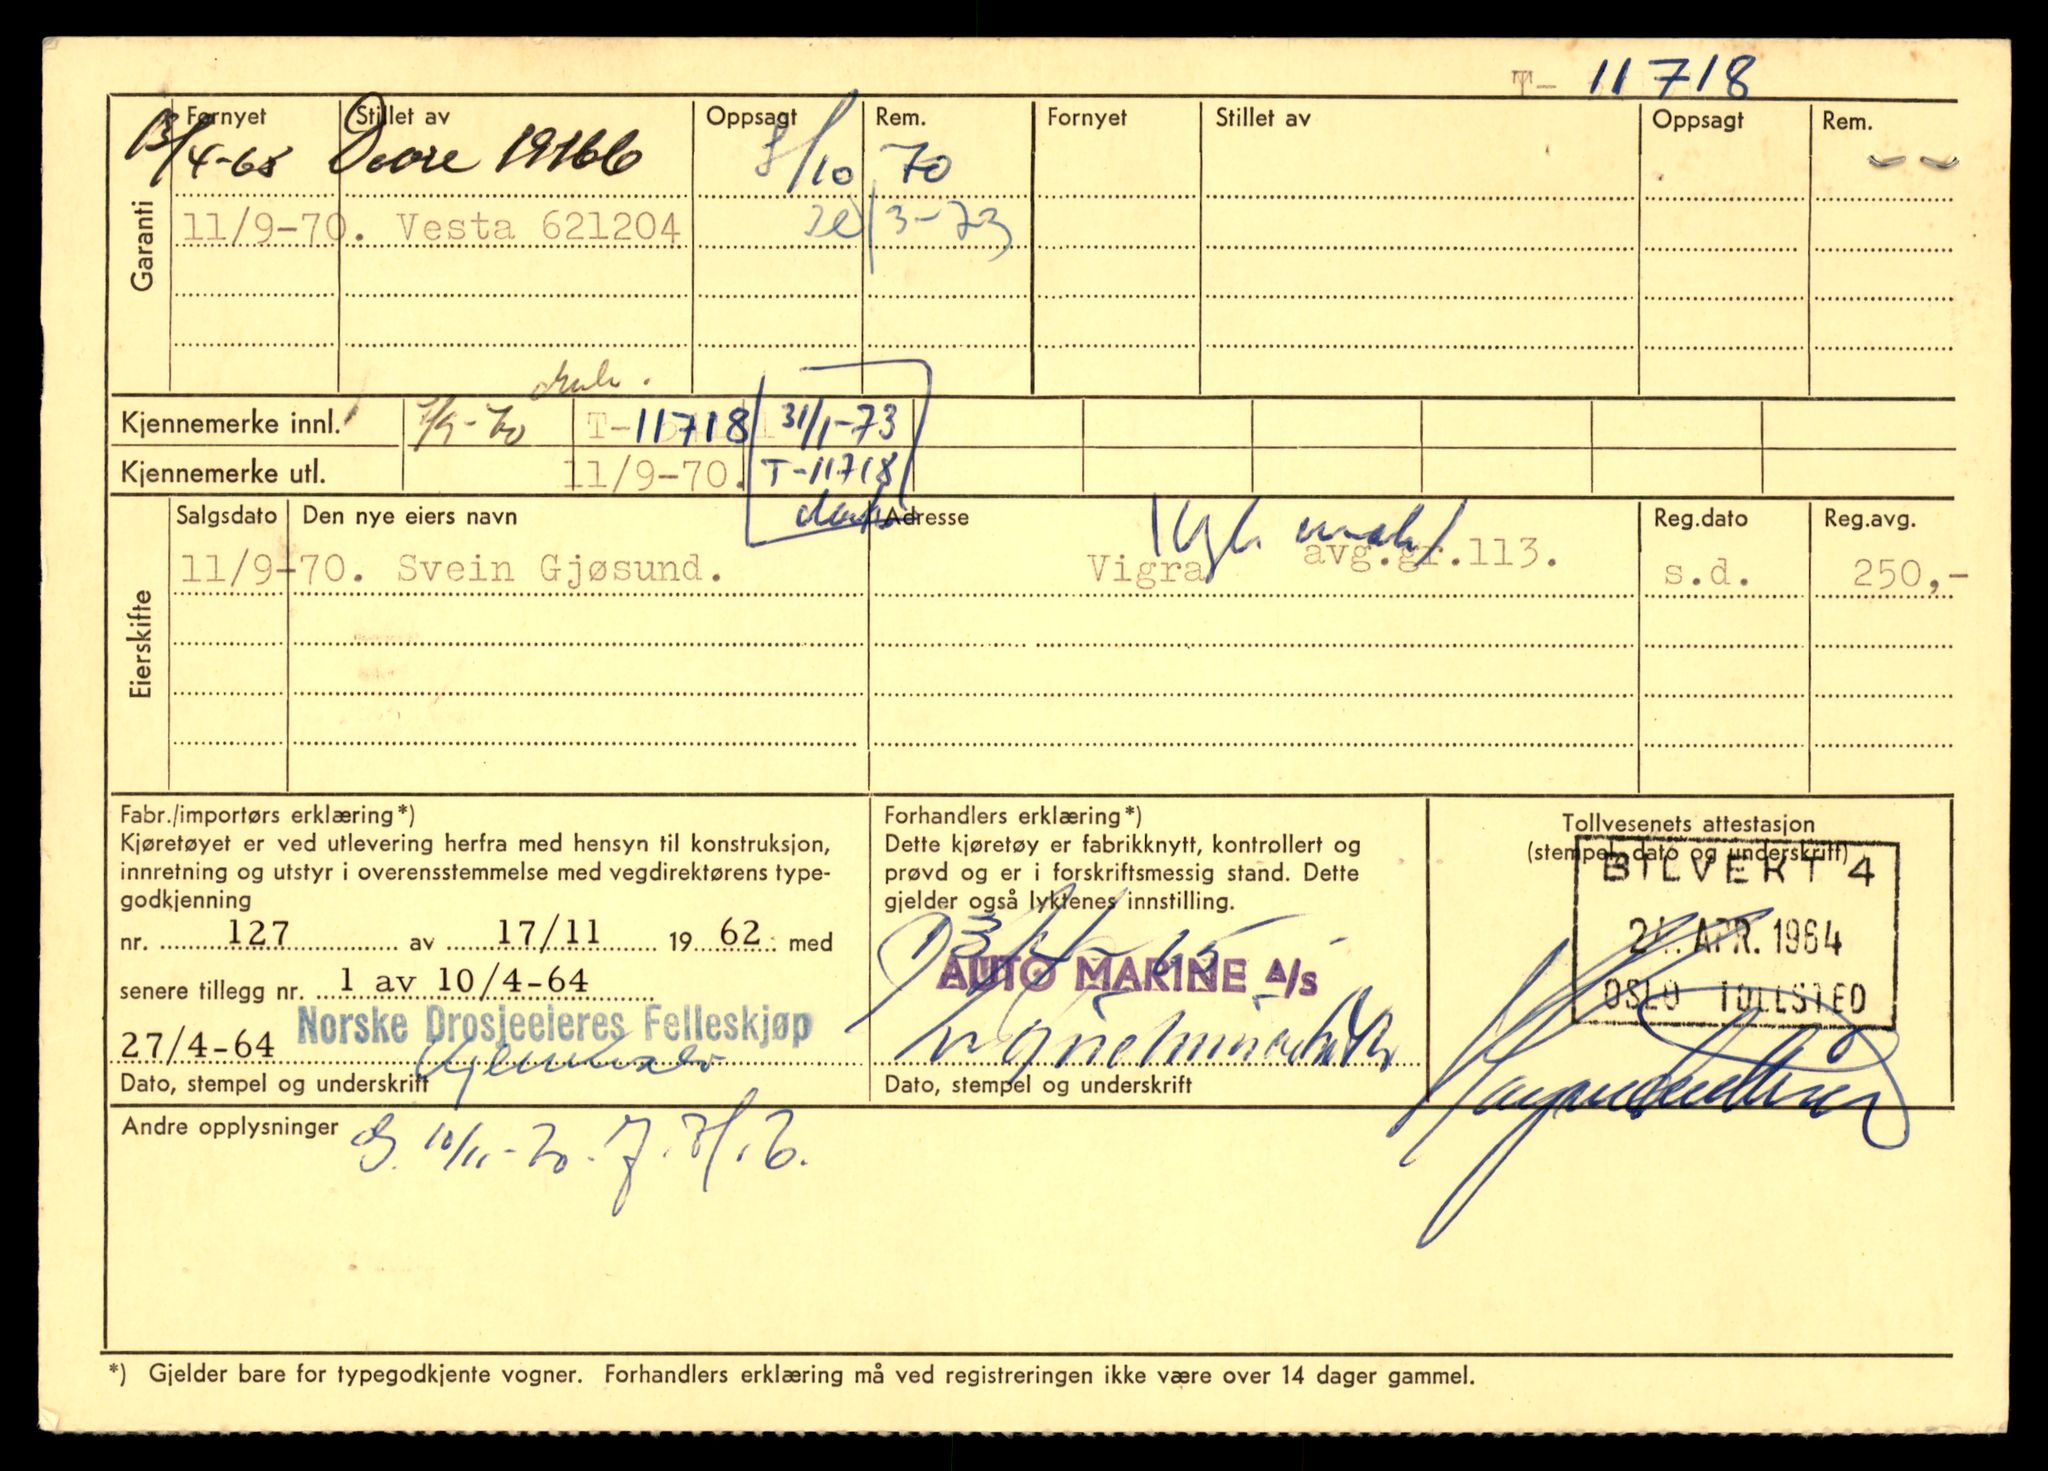 T- 11718
Fornyet Stillet av Oppsagt Rem. Fornyet Stillet av Oppsagt Rem.
13/4-65 19166 /10 70
11/9-70. Vesta 621204 /3-73
Garanti
Kjennemerke innl. 7/9-70 T-11718 31/1-73
Kjennemerke utl. 11/9-70. T-11718
Salgsdato Den nye eiers navn Adresse Reg.dato Reg.avg.
11/9-70. Svein Gjøsund. Vigra avg.gr.113. s.d. 250,-
Eierskifte
Fabr./importørs erklæring*)
Kjøretøyet er ved utlevering herfra med hensyn til konstruksjon,
innretning og utstyr i overensstemmelse med vegdirektørens type-
godkjenning
nr. 127 av 17/11 19 62 med
senere tillegg nr. 1 av 10/4-64
Norske Drosjeeieres Felleskjøp
27/4-64
Dato, stempel og underskrift
Forhandlers erklæring*)
Dette kjøretøy er fabrikknytt, kontrollert og
prøvd og er i forskriftsmessig stand. Dette
gjelder også lyktenes innstilling.
AUTO MARINE A/S
Dato, stempel og underskrift
Tollvesenets attestasjon
(stempel, dato og underskrift)
BILVEKT 4
24. APR. 1964
OSLO TOLLSTED
Andre opplysninger 10/11-70.
*) Gjelder bare for typegodkjente vogner. Forhandlers erklæring må ved registreringen ikke være over 14 dager gammel.